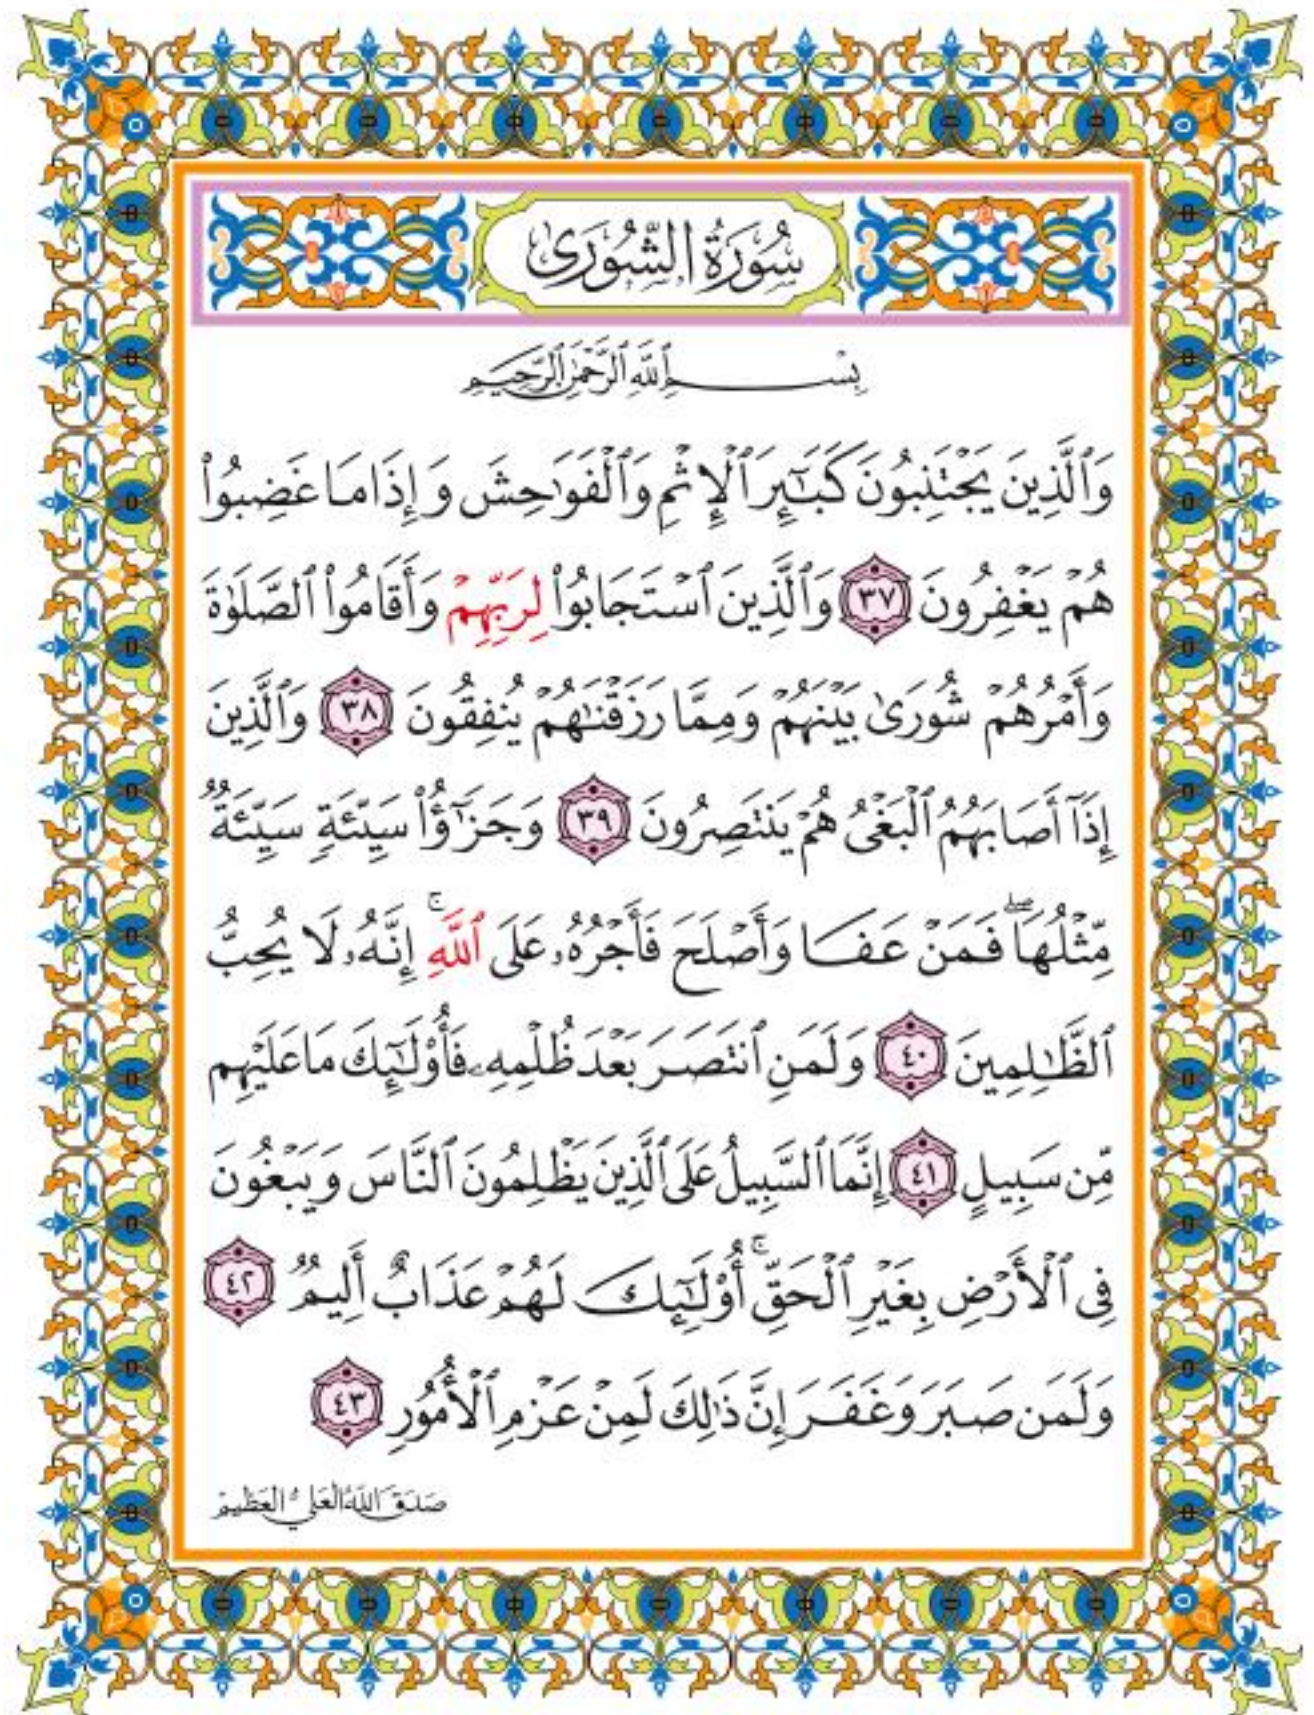 سُورَةُ الشُّورَىٰ
بِسْمِ ٱللَّهِ ٱلرَّحْمَٰنِ ٱلرَّحِيمِ
وَٱلَّذِينَ يَجْتَنِبُونَ كَبَٰٓئِرَ ٱلْإِثْمِ وَٱلْفَوَٰحِشَ وَإِذَا مَا غَضِبُوا۟
هُمْ يَغْفِرُونَ ٣٧ وَٱلَّذِينَ ٱسْتَجَابُوا۟ لِرَبِّهِمْ وَأَقَامُوا۟ ٱلصَّلَوٰةَ
وَأَمْرُهُمْ شُورَىٰ بَيْنَهُمْ وَمِمَّا رَزَقْنَٰهُمْ يُنفِقُونَ ٣٨ وَٱلَّذِينَ
إِذَآ أَصَابَهُمُ ٱلْبَغْىُ هُمْ يَنتَصِرُونَ ٣٩ وَجَزَٰٓؤُا۟ سَيِّئَةٍ سَيِّئَةٌ
مِّثْلُهَا ۖ فَمَنْ عَفَا وَأَصْلَحَ فَأَجْرُهُۥ عَلَى ٱللَّهِ ۚ إِنَّهُۥ لَا يُحِبُّ
ٱلظَّٰلِمِينَ ٤٠ وَلَمَنِ ٱنتَصَرَ بَعْدَ ظُلْمِهِۦ فَأُو۟لَٰٓئِكَ مَا عَلَيْهِم
مِّن سَبِيلٍ ٤١ إِنَّمَا ٱلسَّبِيلُ عَلَى ٱلَّذِينَ يَظْلِمُونَ ٱلنَّاسَ وَيَبْغُونَ
فِى ٱلْأَرْضِ بِغَيْرِ ٱلْحَقِّ ۚ أُو۟لَٰٓئِكَ لَهُمْ عَذَابٌ أَلِيمٌ ٤٢
وَلَمَن صَبَرَ وَغَفَرَ إِنَّ ذَٰلِكَ لَمِنْ عَزْمِ ٱلْأُمُورِ ٤٣
صَدَقَ اللَّهُ العَلِيُّ العَظِيمُ